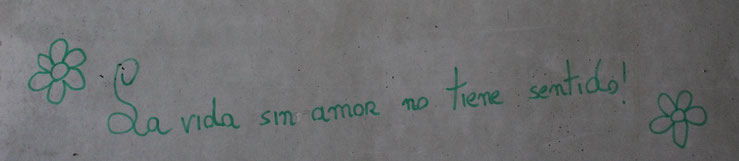 La vida sin amor no tiene sentido!